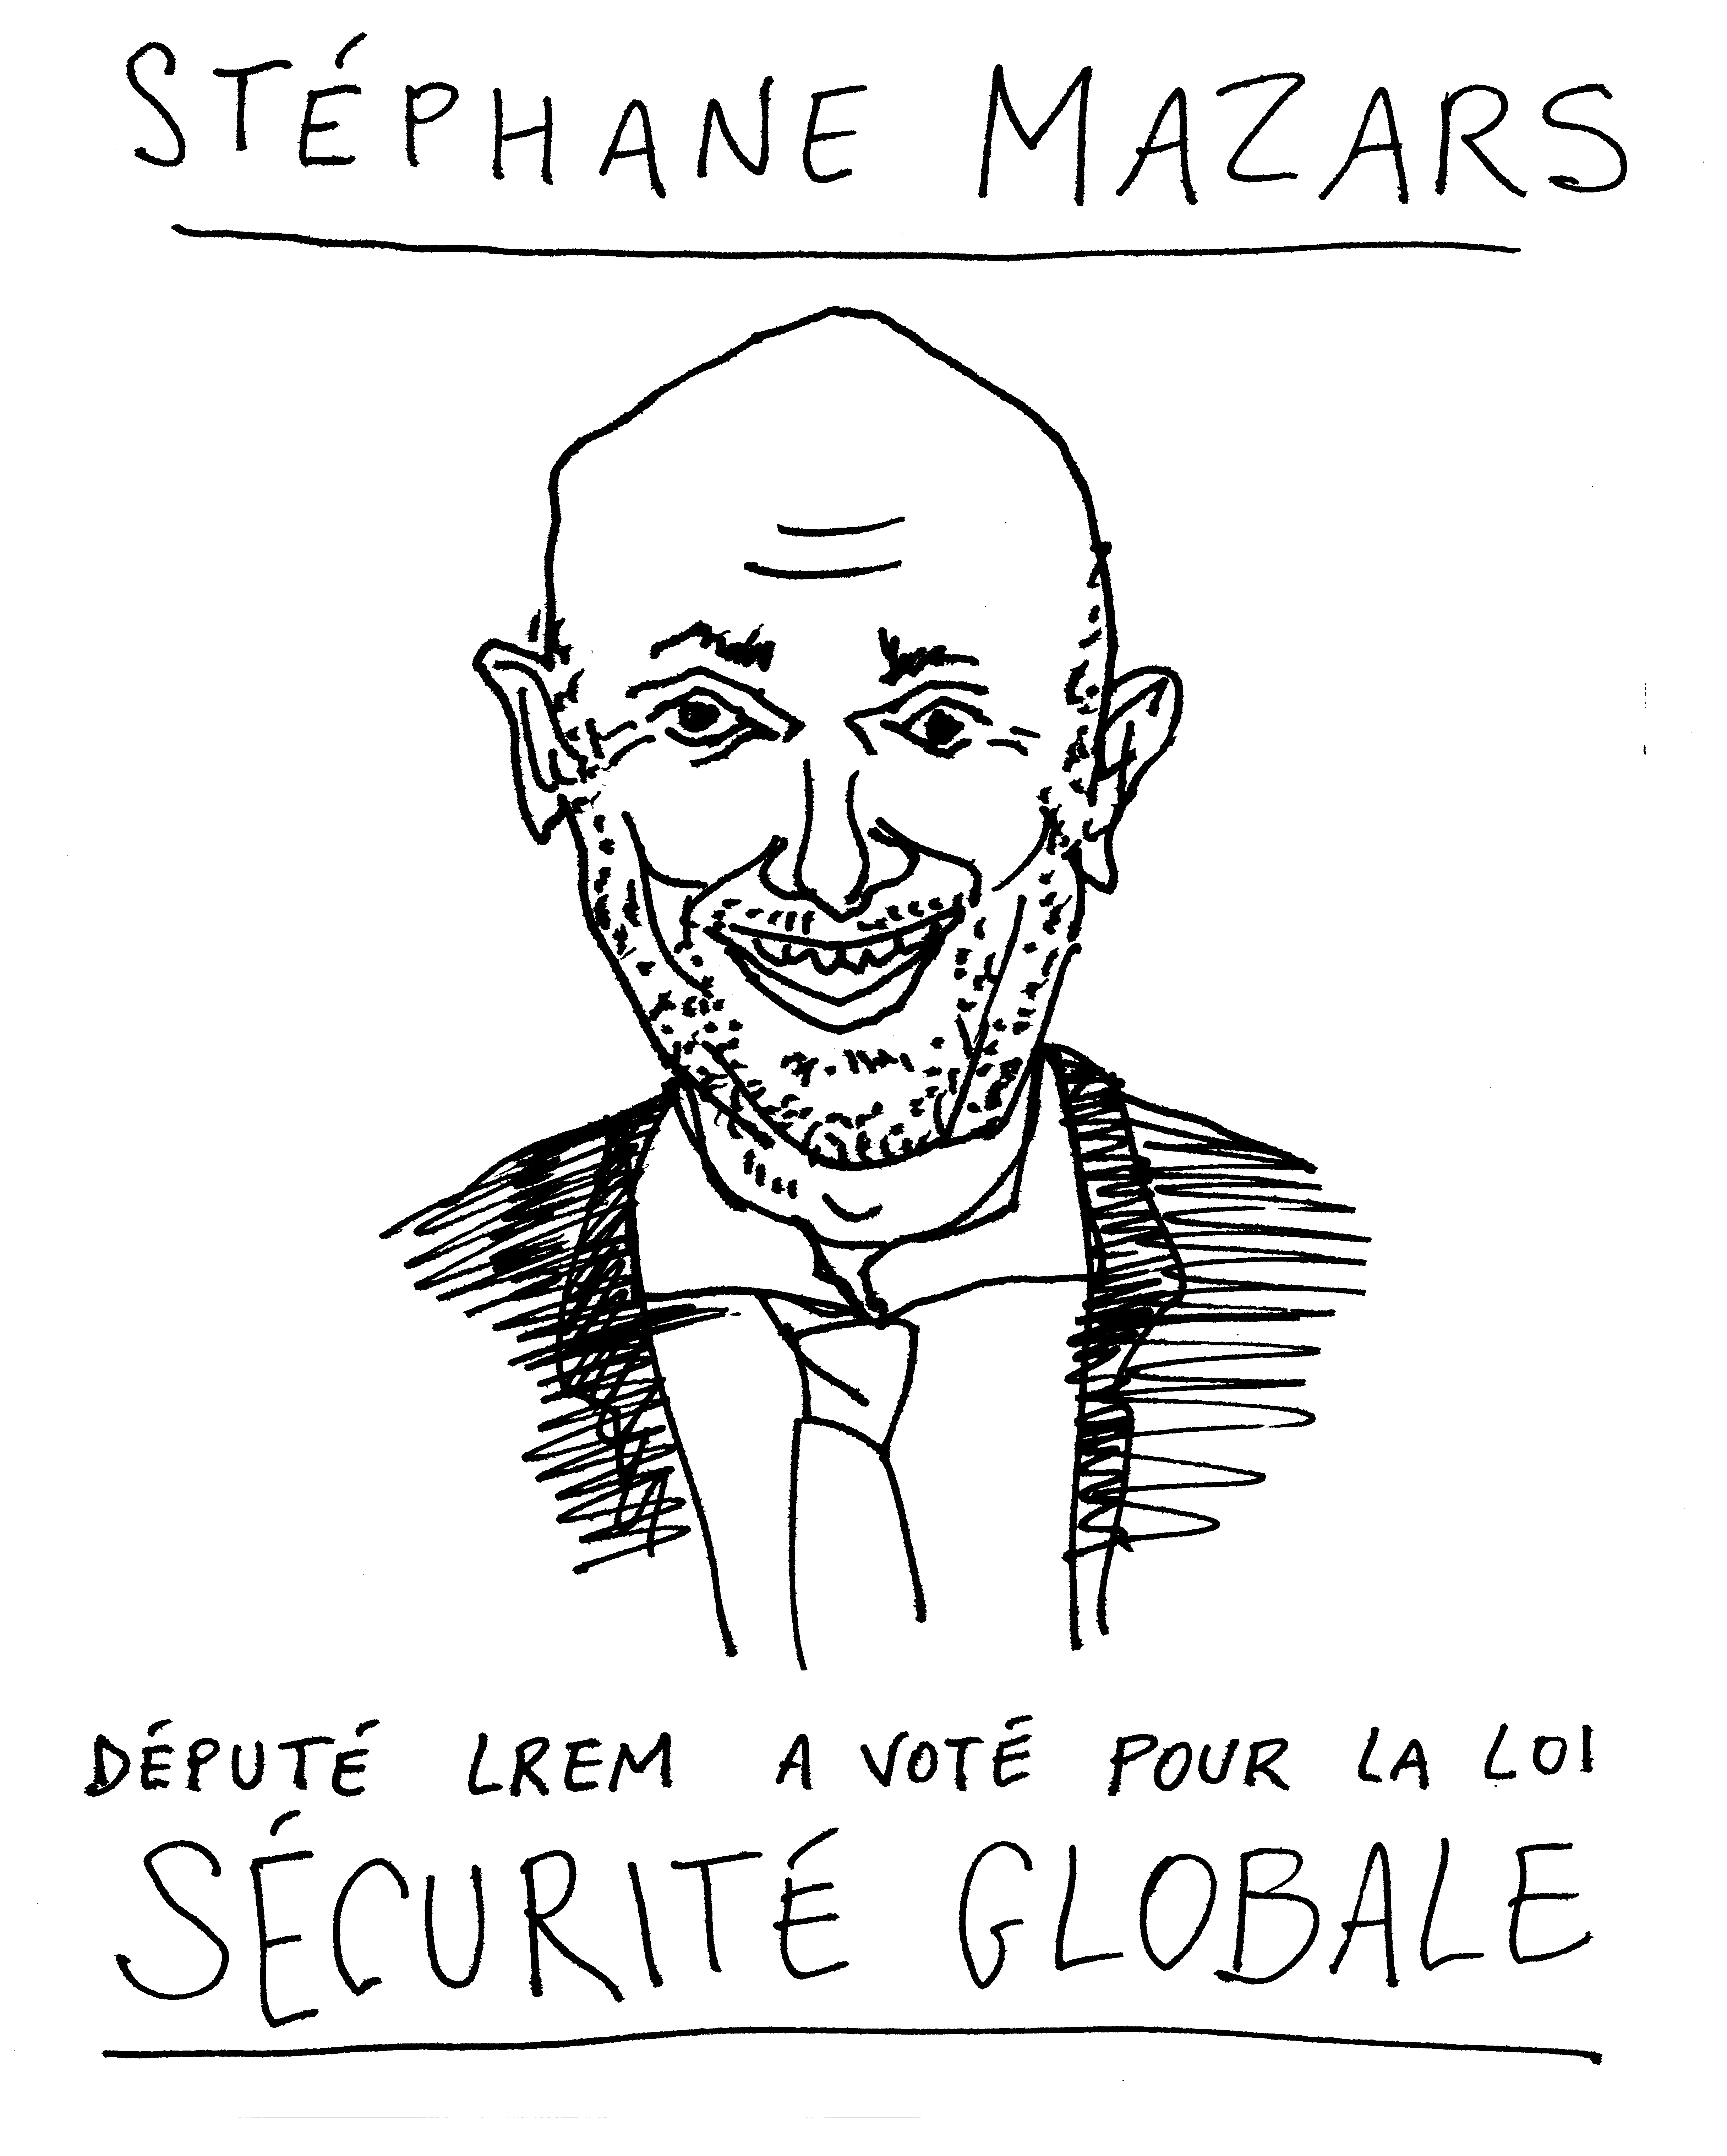 STÉPHANE MAZARS
DÉPUTÉ LREM A VOTÉ POUR LA LOI
SÉCURITÉ GLOBALE